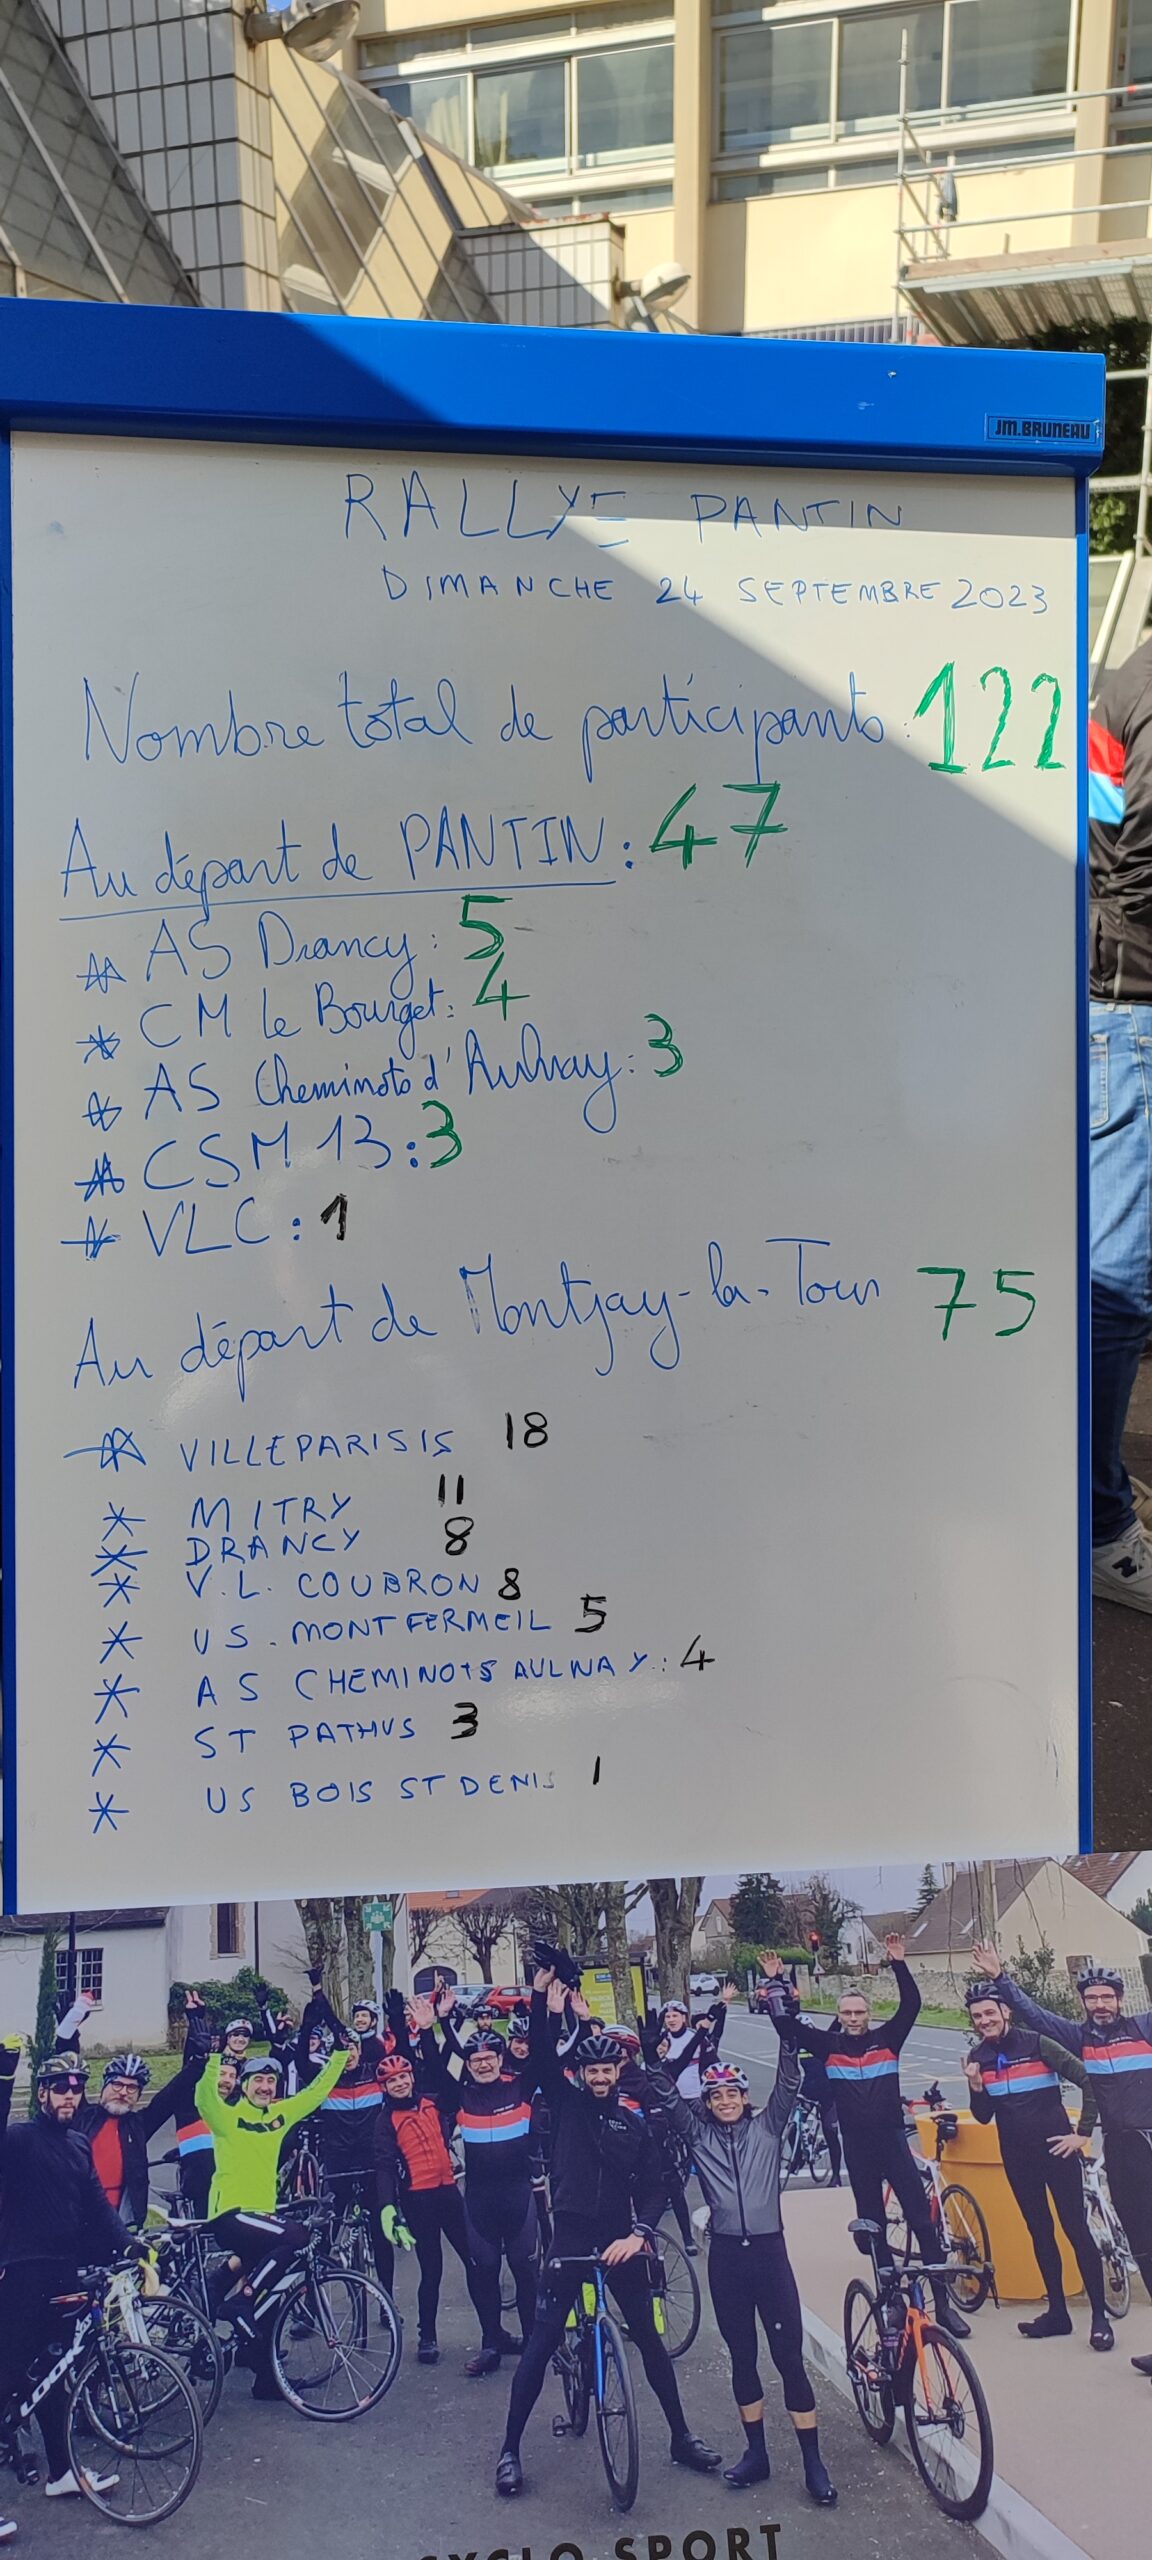 JM.BRUNEAU
RALLYE PANTIN
DIMANCHE 24 SEPTEMBRE 2023
Nombre total de participants : 122
Au départ de PANTIN : 47
* AS Drancy : 5
* CM le Bourget : 4
* AS Cheminots d'Aulnay : 3
* CSM 13 : 3
* VLC : 1
Au départ de Montjay-la-Tour 75
* VILLEPARISIS 18
* MITRY 11
* DRANCY 8
* V.L. COUBRON 8
* US. MONTFERMEIL 5
* AS CHEMINOTS AULNAY : 4
* ST PATHUS 3
* US BOIS ST DENIS 1
LOOK
CYCLO SPORT